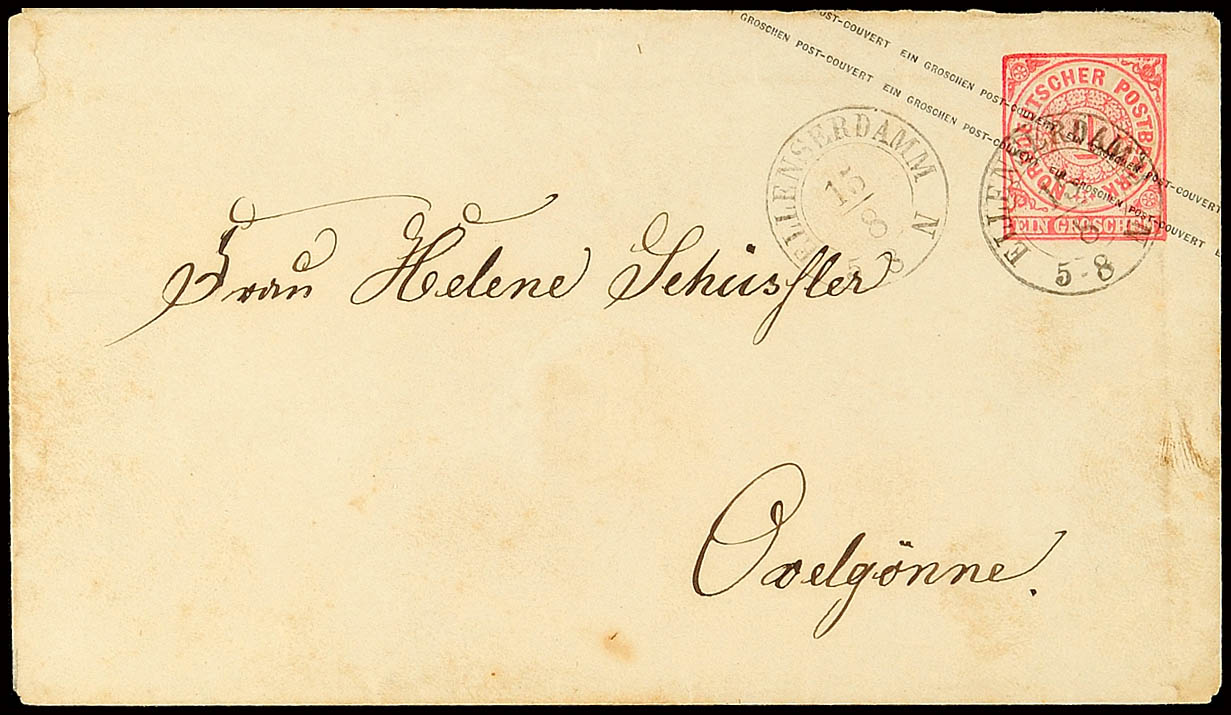 OST-COUVERT EIN GROSCHEN POST-COUVERT EIN GROSCHEN POST-COUVERT
GROSCHEN POST-COUVERT EIN GROSCHEN POST-COUVERT EIN GROSCHEN POST-COUVERT E
NORDDEUTSCHER POSTBEZIRK
1
EIN GROSCHEN
ELLENSERDAMM N
15/8
5-8
ELLENSERDAMM N
15/8
5-8
Frau Helene Schüssler
Ovelgönne.